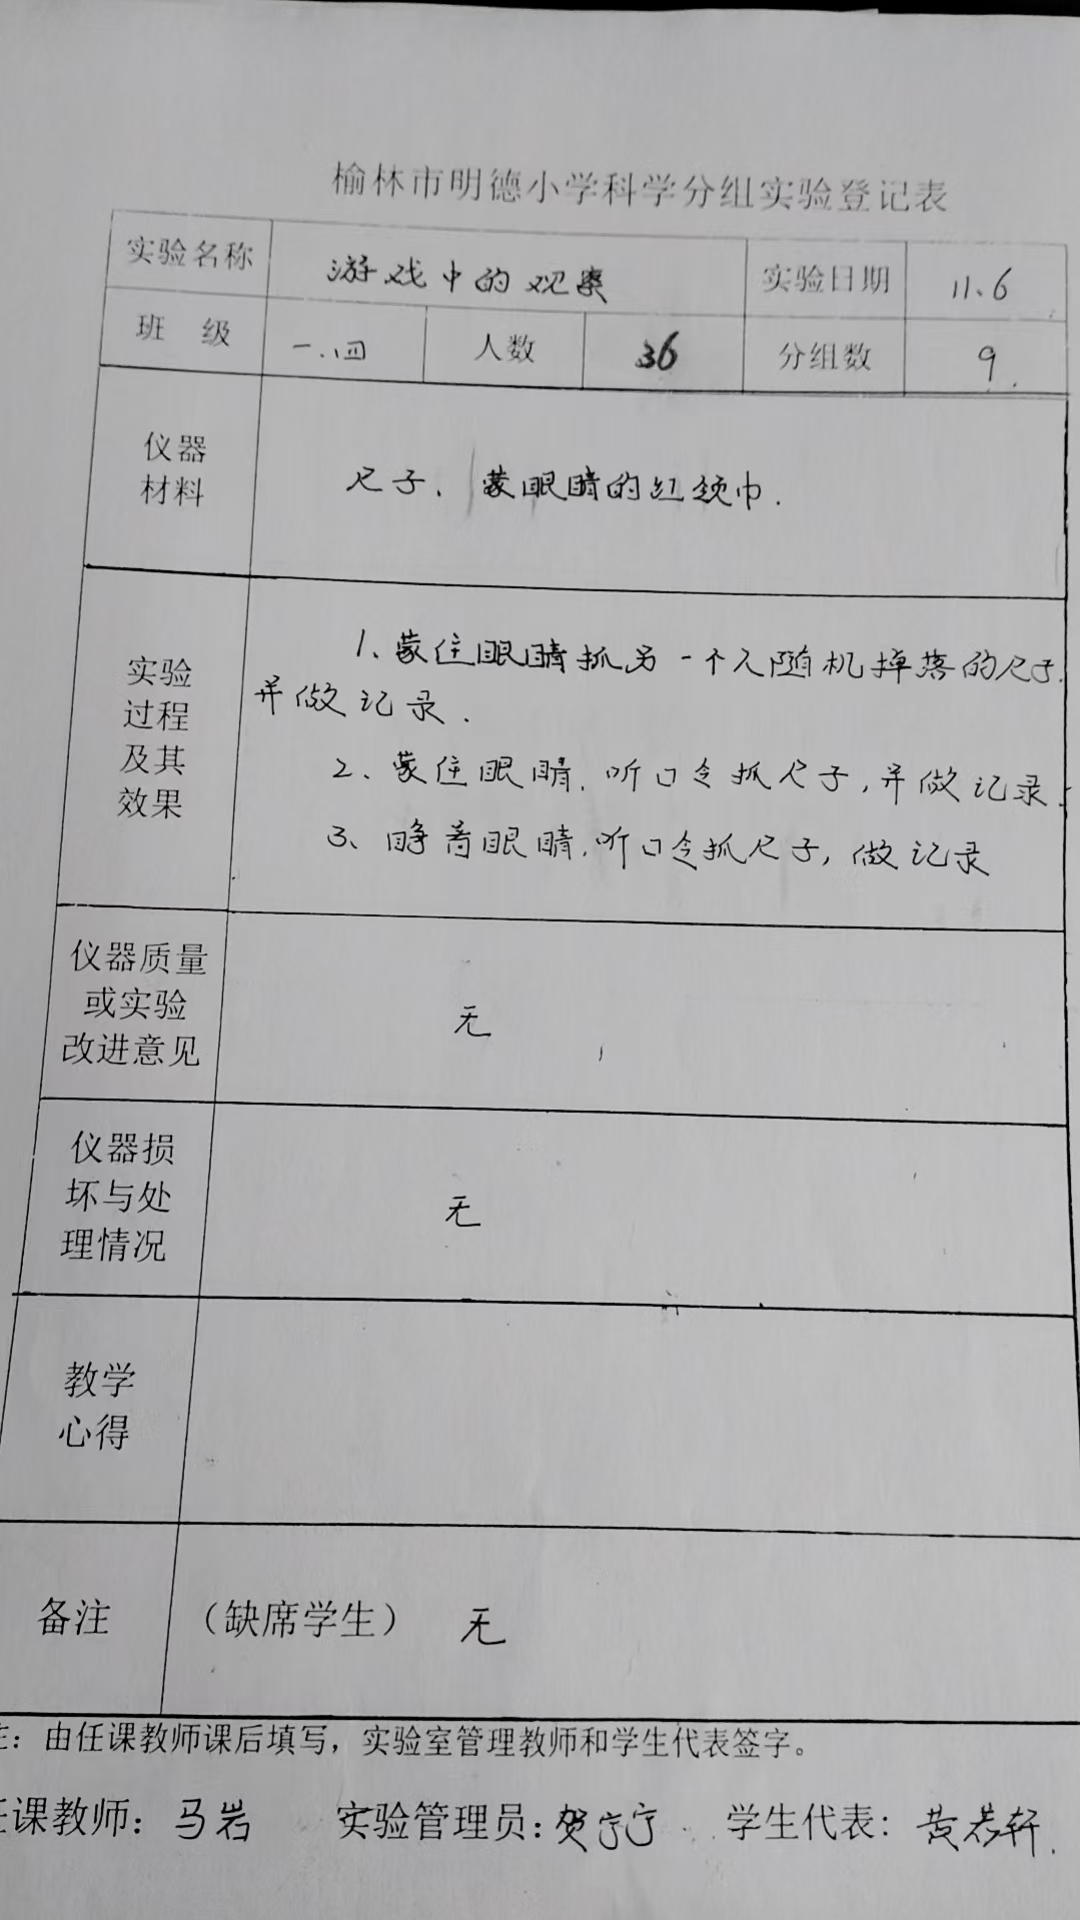 榆林市明德小学科学分组实验登记表
实验名称 游戏中的观察 实验日期 11.6
班 级 一.四 人数 36 分组数 9
仪器
材料
尺子、蒙眼睛的红领巾.
实验
过程
及其
效果
1、蒙住眼睛抓另一个人随机掉落的尺子.
并做记录.
2、蒙住眼睛.听口令抓尺子,并做记录.
3、睁着眼睛.听口令抓尺子,做记录
仪器质量
或实验
改进意见
无
仪器损
坏与处
理情况
无
教学
心得
备注 (缺席学生) 无
注：由任课教师课后填写，实验室管理教师和学生代表签字。
任课教师：马岩 实验管理员：贺宁宁 学生代表：黄若轩.